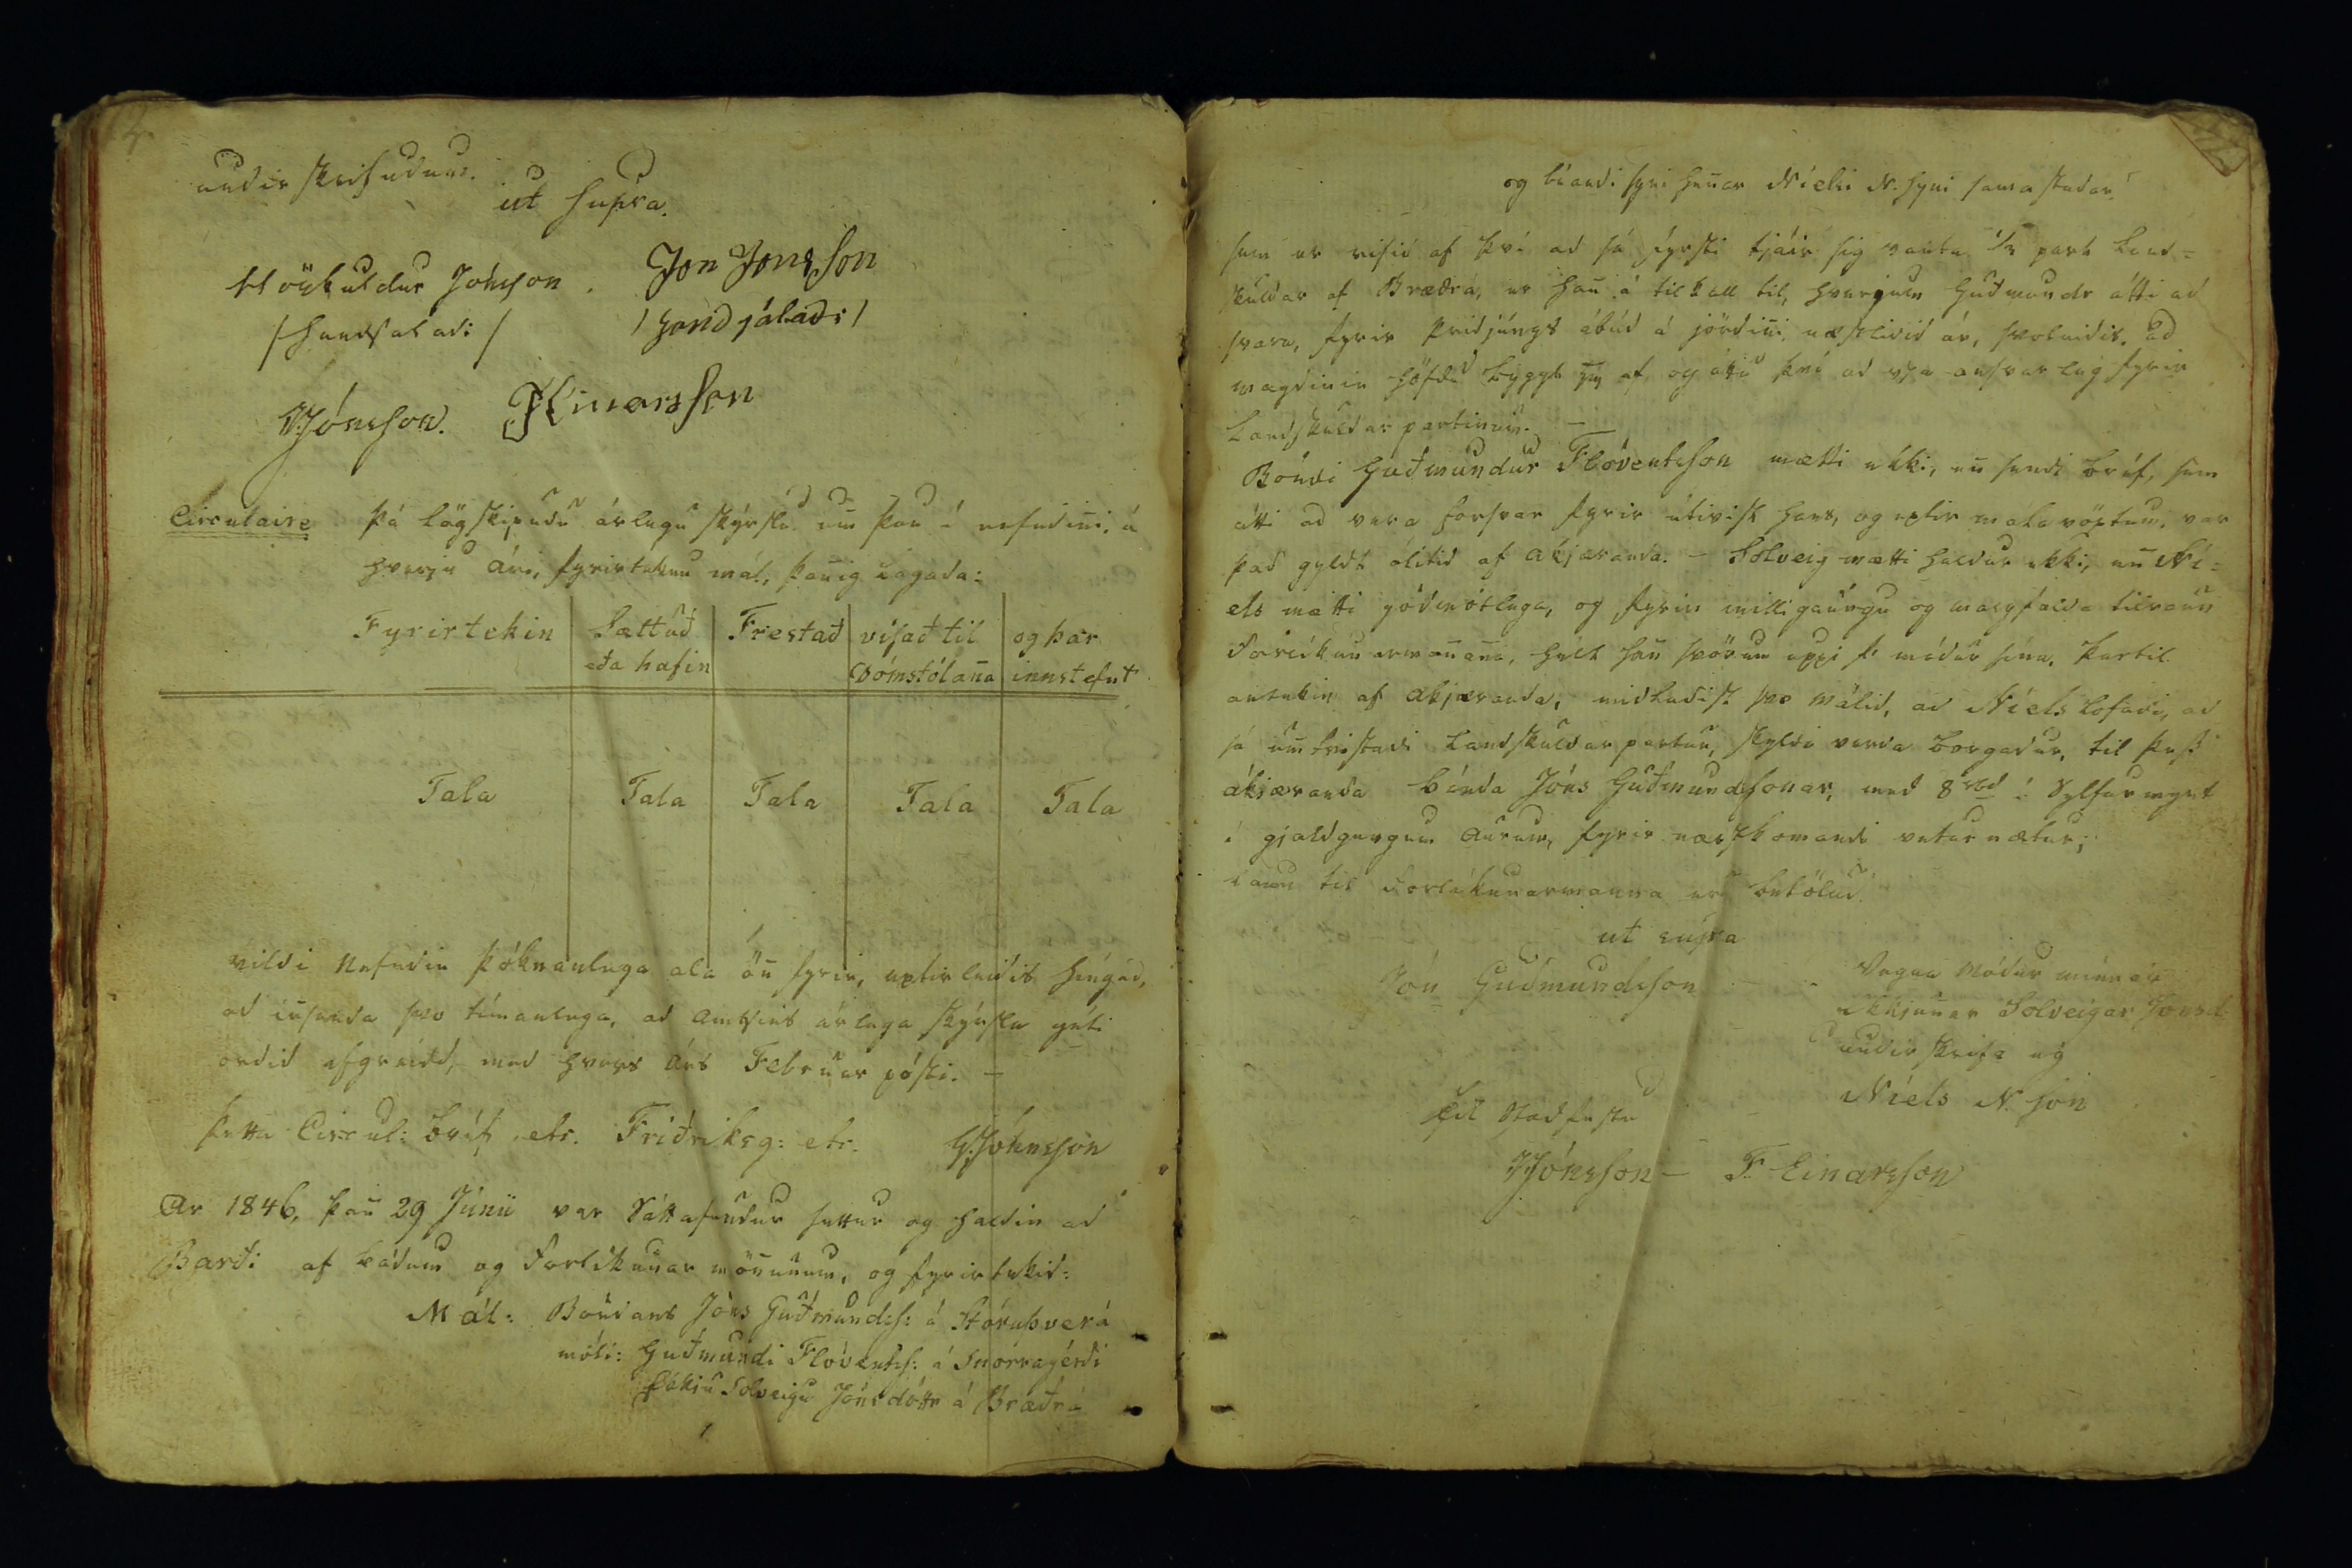 undir skrifudum.
ut supra.
Höskuldur Jónsson. Jon Jonsson
/handsaladi/ /handsalaði/
JJónsson. FEinarsson
Circulaire Þá lögskipudu árlegu skýrslu um þau í nefndiñi, á
hverju ári, fyrirtekun mál, þañig lagada:
Fyrirtekin | Sættuð eða hafin | Frestað | vísað til Dómstólaña | og þar innstefnt
Tala | Tala | Tala | Tala | Tala
vildi Nefndin þóknanlega ala öñ fyrir, eptirleidis hingad,
ad iñsenda svo tímanlega, ad Amtsins árlega skýrsla géti
ordid afgreidd, med hvers árs Februar pósti. –
Þetta Circul: bréf etc. Friðriksg: etc. GJóhnsson
Ar 1846, þañ 29 Júnii var Sáttafundur settur og haldin ad
Bardi af bádum og Forlíkunar möñunum, og fyrirtekid:
Mál: Bóndans Jóns Guðmundss: á Stóruþverá
móti: Guðmundi Flóventss: á Snórragérdi
Eckju Solveigu Jónsdóttr á Brædrá
og búandi syni heñar Níelsi N. syni samastadar
sem er risid af því ad sá fyrsti tjáir sig vanta 1/3 part Land=
skuldar af Brædrá, er hañ á tilkall til, hverjum Guðmundr átti ad
svara, fyrir þridjungs ábúd á jördiñi, næstlidid ár, svoleidis, ad
mægdinin höfdu byggt af og áttu því ad vera ansvarleg fyrir
Landskuldar partinum. –
Bóndi Guðmundur Flóventsson mætti ekki, eñ sendi bréf, sem
átti ad vera forsvar fyrir útivist hans, og eptir málavöxtum, var
það gyldt álitid af ákjæranda. – Solveig mætti heldur ekki, eñ Ní=
els mætti gódmótlega, og fyrir milligaungu og margfalda tilraun
Forlíkunarmañaña, hélt hañ svörum uppi fr módur sína. Þartil
antekin af ákjæranda, midladist svo málid, ad Níels lofadi, ad
sá umtrættadi Landskuldar partur, skyldi verda borgadur, til þess
ákjæranda bónda Jóns Guðmundssonar, med 8 rbd í Sylfurmynt
í gjaldgengum Aurum, fyrir næstkomandi veturnætur;
Laun til Forlíkunarmanna eru betölud.
ut supra
Jón Guðmundsson – Vegna Módur minnar
Ekkjunnar Solveigar Jonsd
undirskrifa eg
Níels N. son
Til Stadfestu
JJónsson – F. Einarsson